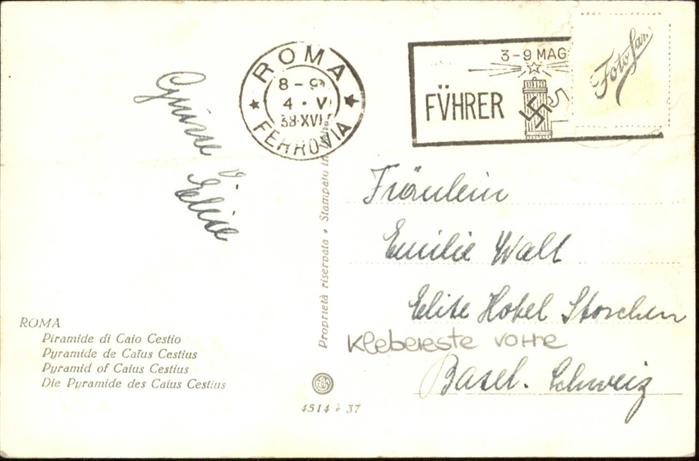 ROMA
8-9
4·V
38·XVI
FERROVIA
3-9 MAG
FÜHRER
Foto
Grüsse
Elise
Fräulein
Emilie Walt
Elite Hotel Storchen
Klebereste vorne
Basel. Schweiz
Proprietà riservata · Stampato in
ROMA
Piramide di Caio Cestio
Pyramide de Caïus Cestius
Pyramid of Caius Cestius
Die Pyramide des Caius Cestius
4514 37